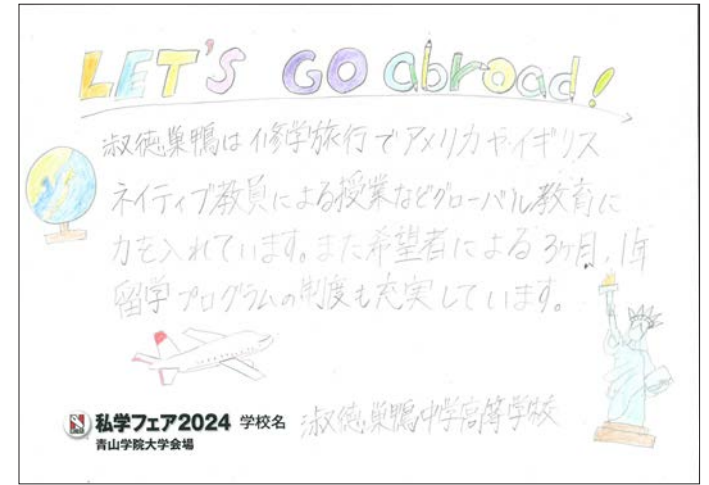 LET'S GO abroad!
淑徳巣鴨は修学旅行でアメリカやイギリス
ネイティブ教員による授業などグローバル教育に
力を入れています。また希望者による3ヶ月、1年
留学プログラムの制度も充実しています。
私学フェア2024 学校名 淑徳巣鴨中学高等学校
青山学院大学会場